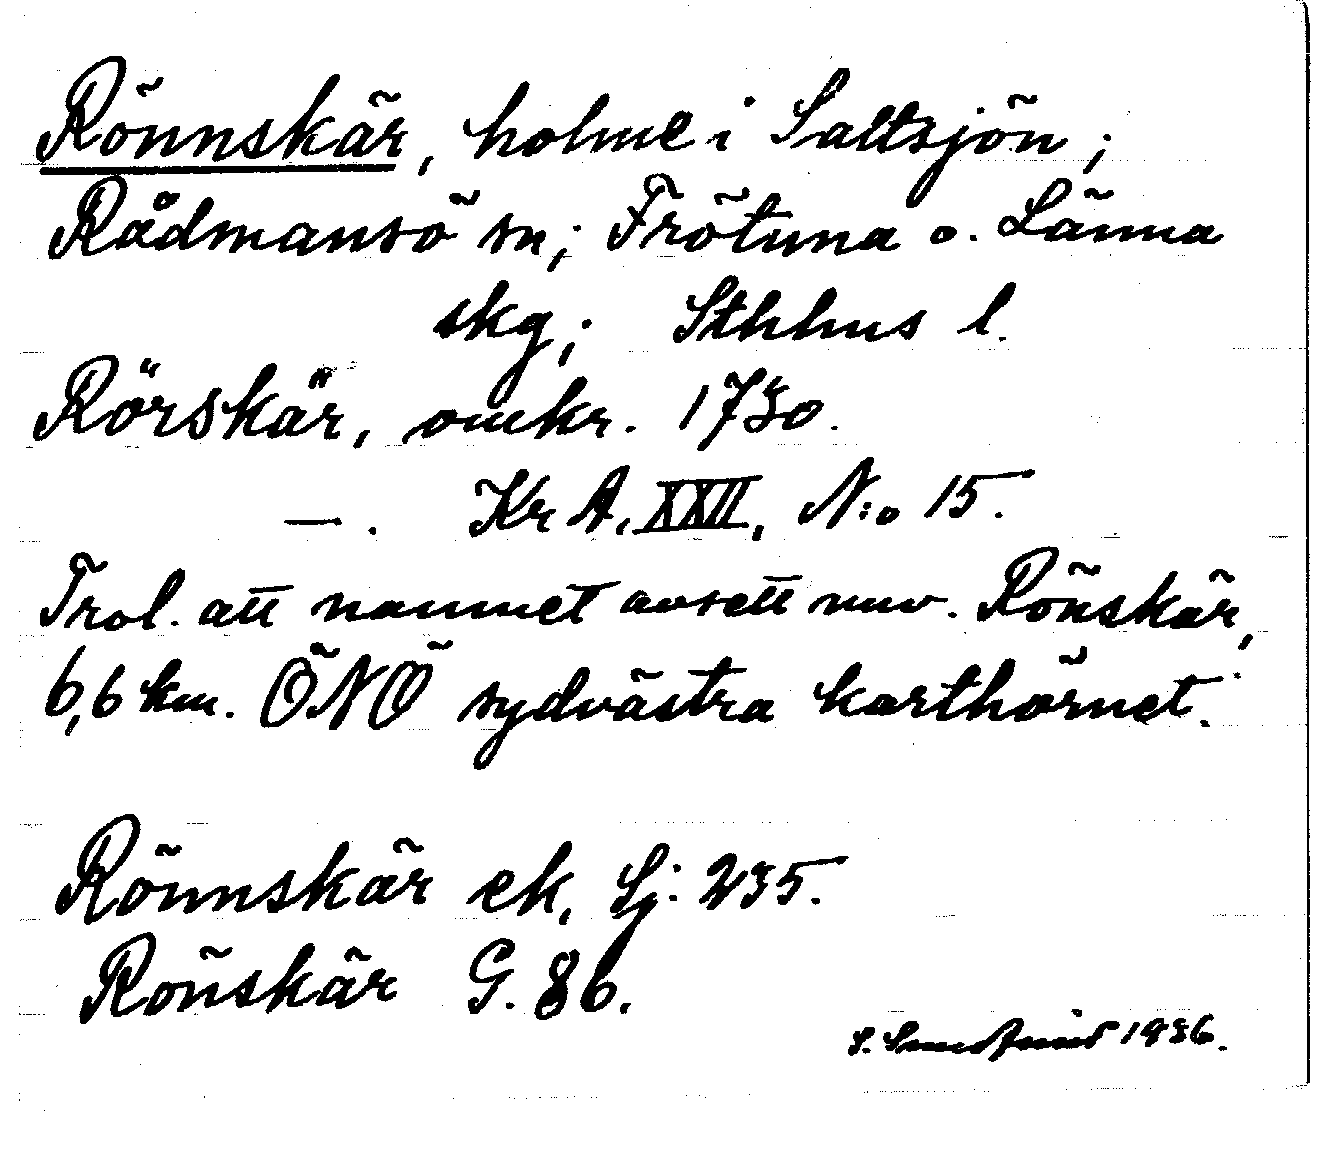 Rönnskär, holme i Saltsjön;
Rådmansö sn; Frötuna o. Länna
skg; Sthlms l.
Rörskär, omkr. 1730.
—. Kr A. XXII, N:o 15.
Trol. att namnet avsett nuv. Rönskär,
6,6 km. ÖNÖ sydvästra karthörnet.
Rönnskär ek, Sj: 235.
Rönskär G. 86.
S. 1936.